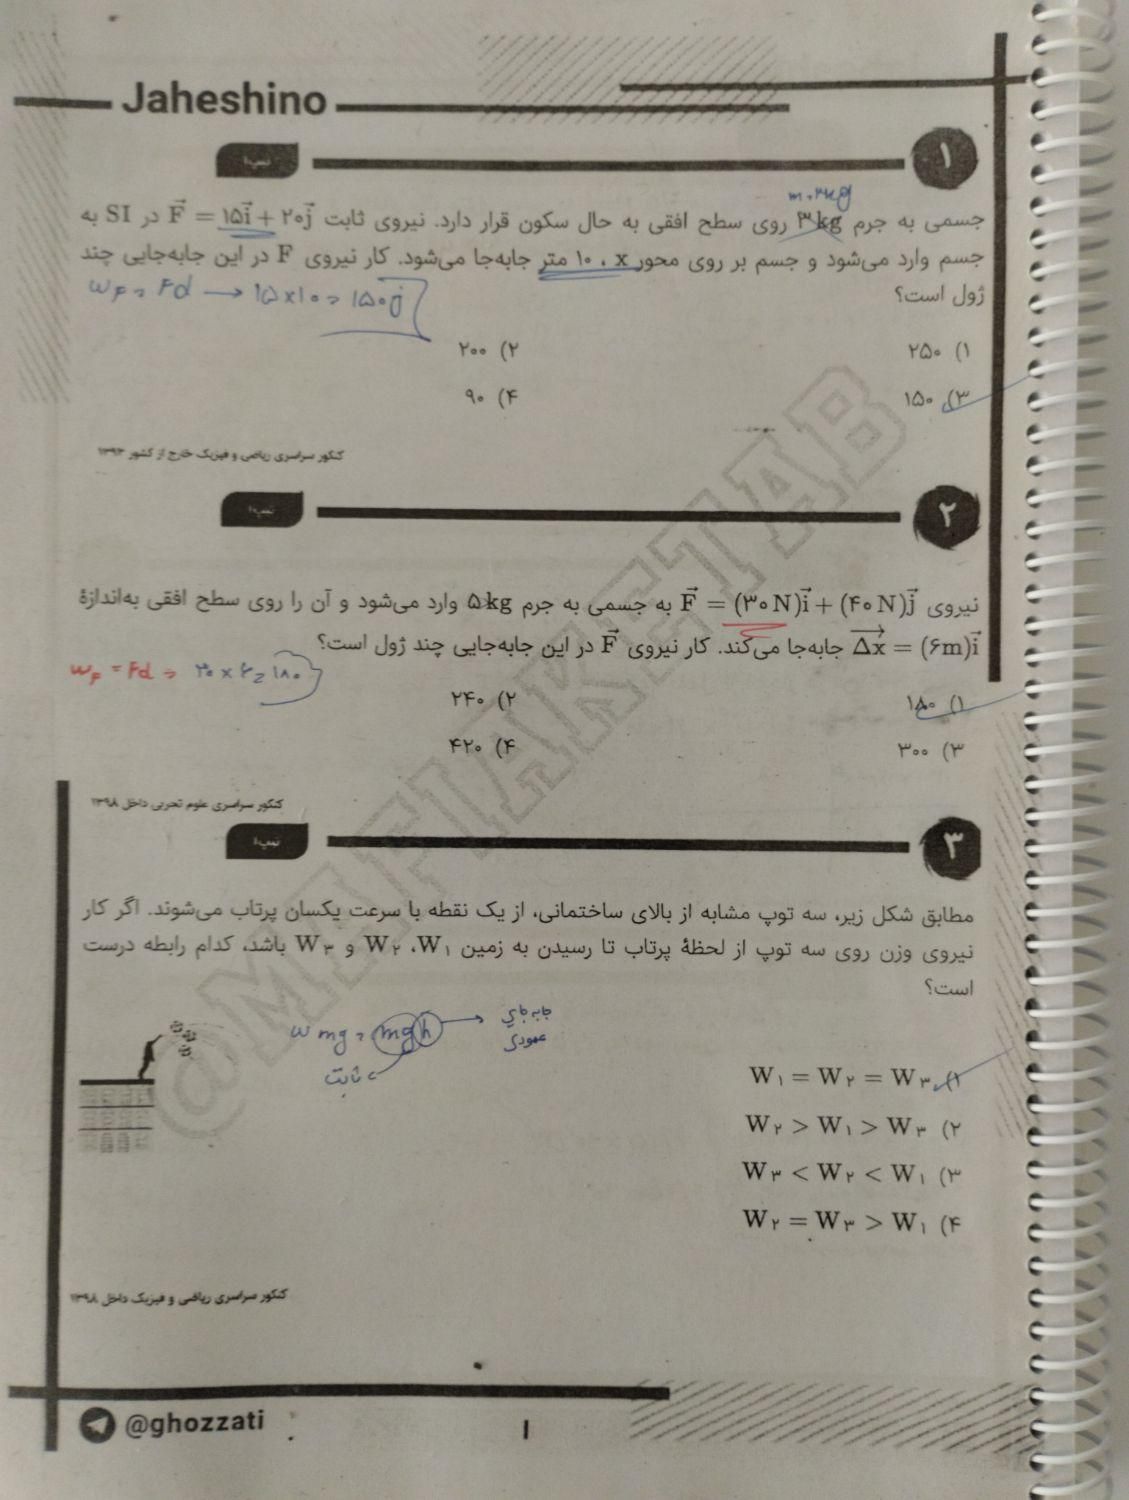 Jaheshino
۱
تیپ۱
m = ۳kg
جسمی به جرم ۳kg روی سطح افقی به حال سکون قرار دارد. نیروی ثابت F = ۱۵i + ۲۰j در SI به
جسم وارد می‌شود و جسم بر روی محور x ، ۱۰ متر جابه‌جا می‌شود. کار نیروی F در این جابه‌جایی چند
ژول است؟
WF = Fd → ۱۵×۱۰ = ۱۵۰j
۱) ۲۵۰
۲) ۲۰۰
۳) ۱۵۰
۴) ۹۰
کنکور سراسری ریاضی و فیزیک خارج از کشور ۱۳۹۳
۲
تیپ۱
نیروی F = (۳۰N)i + (۴۰N)j به جسمی به جرم ۵kg وارد می‌شود و آن را روی سطح افقی به‌اندازهٔ
Δx = (۶m)i جابه‌جا می‌کند. کار نیروی F در این جابه‌جایی چند ژول است؟
WF = Fd = ۳۰×۶ = ۱۸۰
۱) ۱۸۰
۲) ۲۴۰
۳) ۳۰۰
۴) ۴۲۰
کنکور سراسری علوم تجربی داخل ۱۳۹۸
۳
تیپ۱
مطابق شکل زیر، سه توپ مشابه از بالای ساختمانی، از یک نقطه با سرعت یکسان پرتاب می‌شوند. اگر کار
نیروی وزن روی سه توپ از لحظهٔ پرتاب تا رسیدن به زمین W۱، W۲ و W۳ باشد، کدام رابطه درست
است؟
W mg = mgh → جابه‌جایی
عمودی
ثابت
۱) W۱ = W۲ = W۳
۲) W۲ > W۱ > W۳
۳) W۳ < W۲ < W۱
۴) W۲ = W۳ > W۱
کنکور سراسری ریاضی و فیزیک داخل ۱۳۹۸
@MAFIAKETAB
@ghozzati
۱